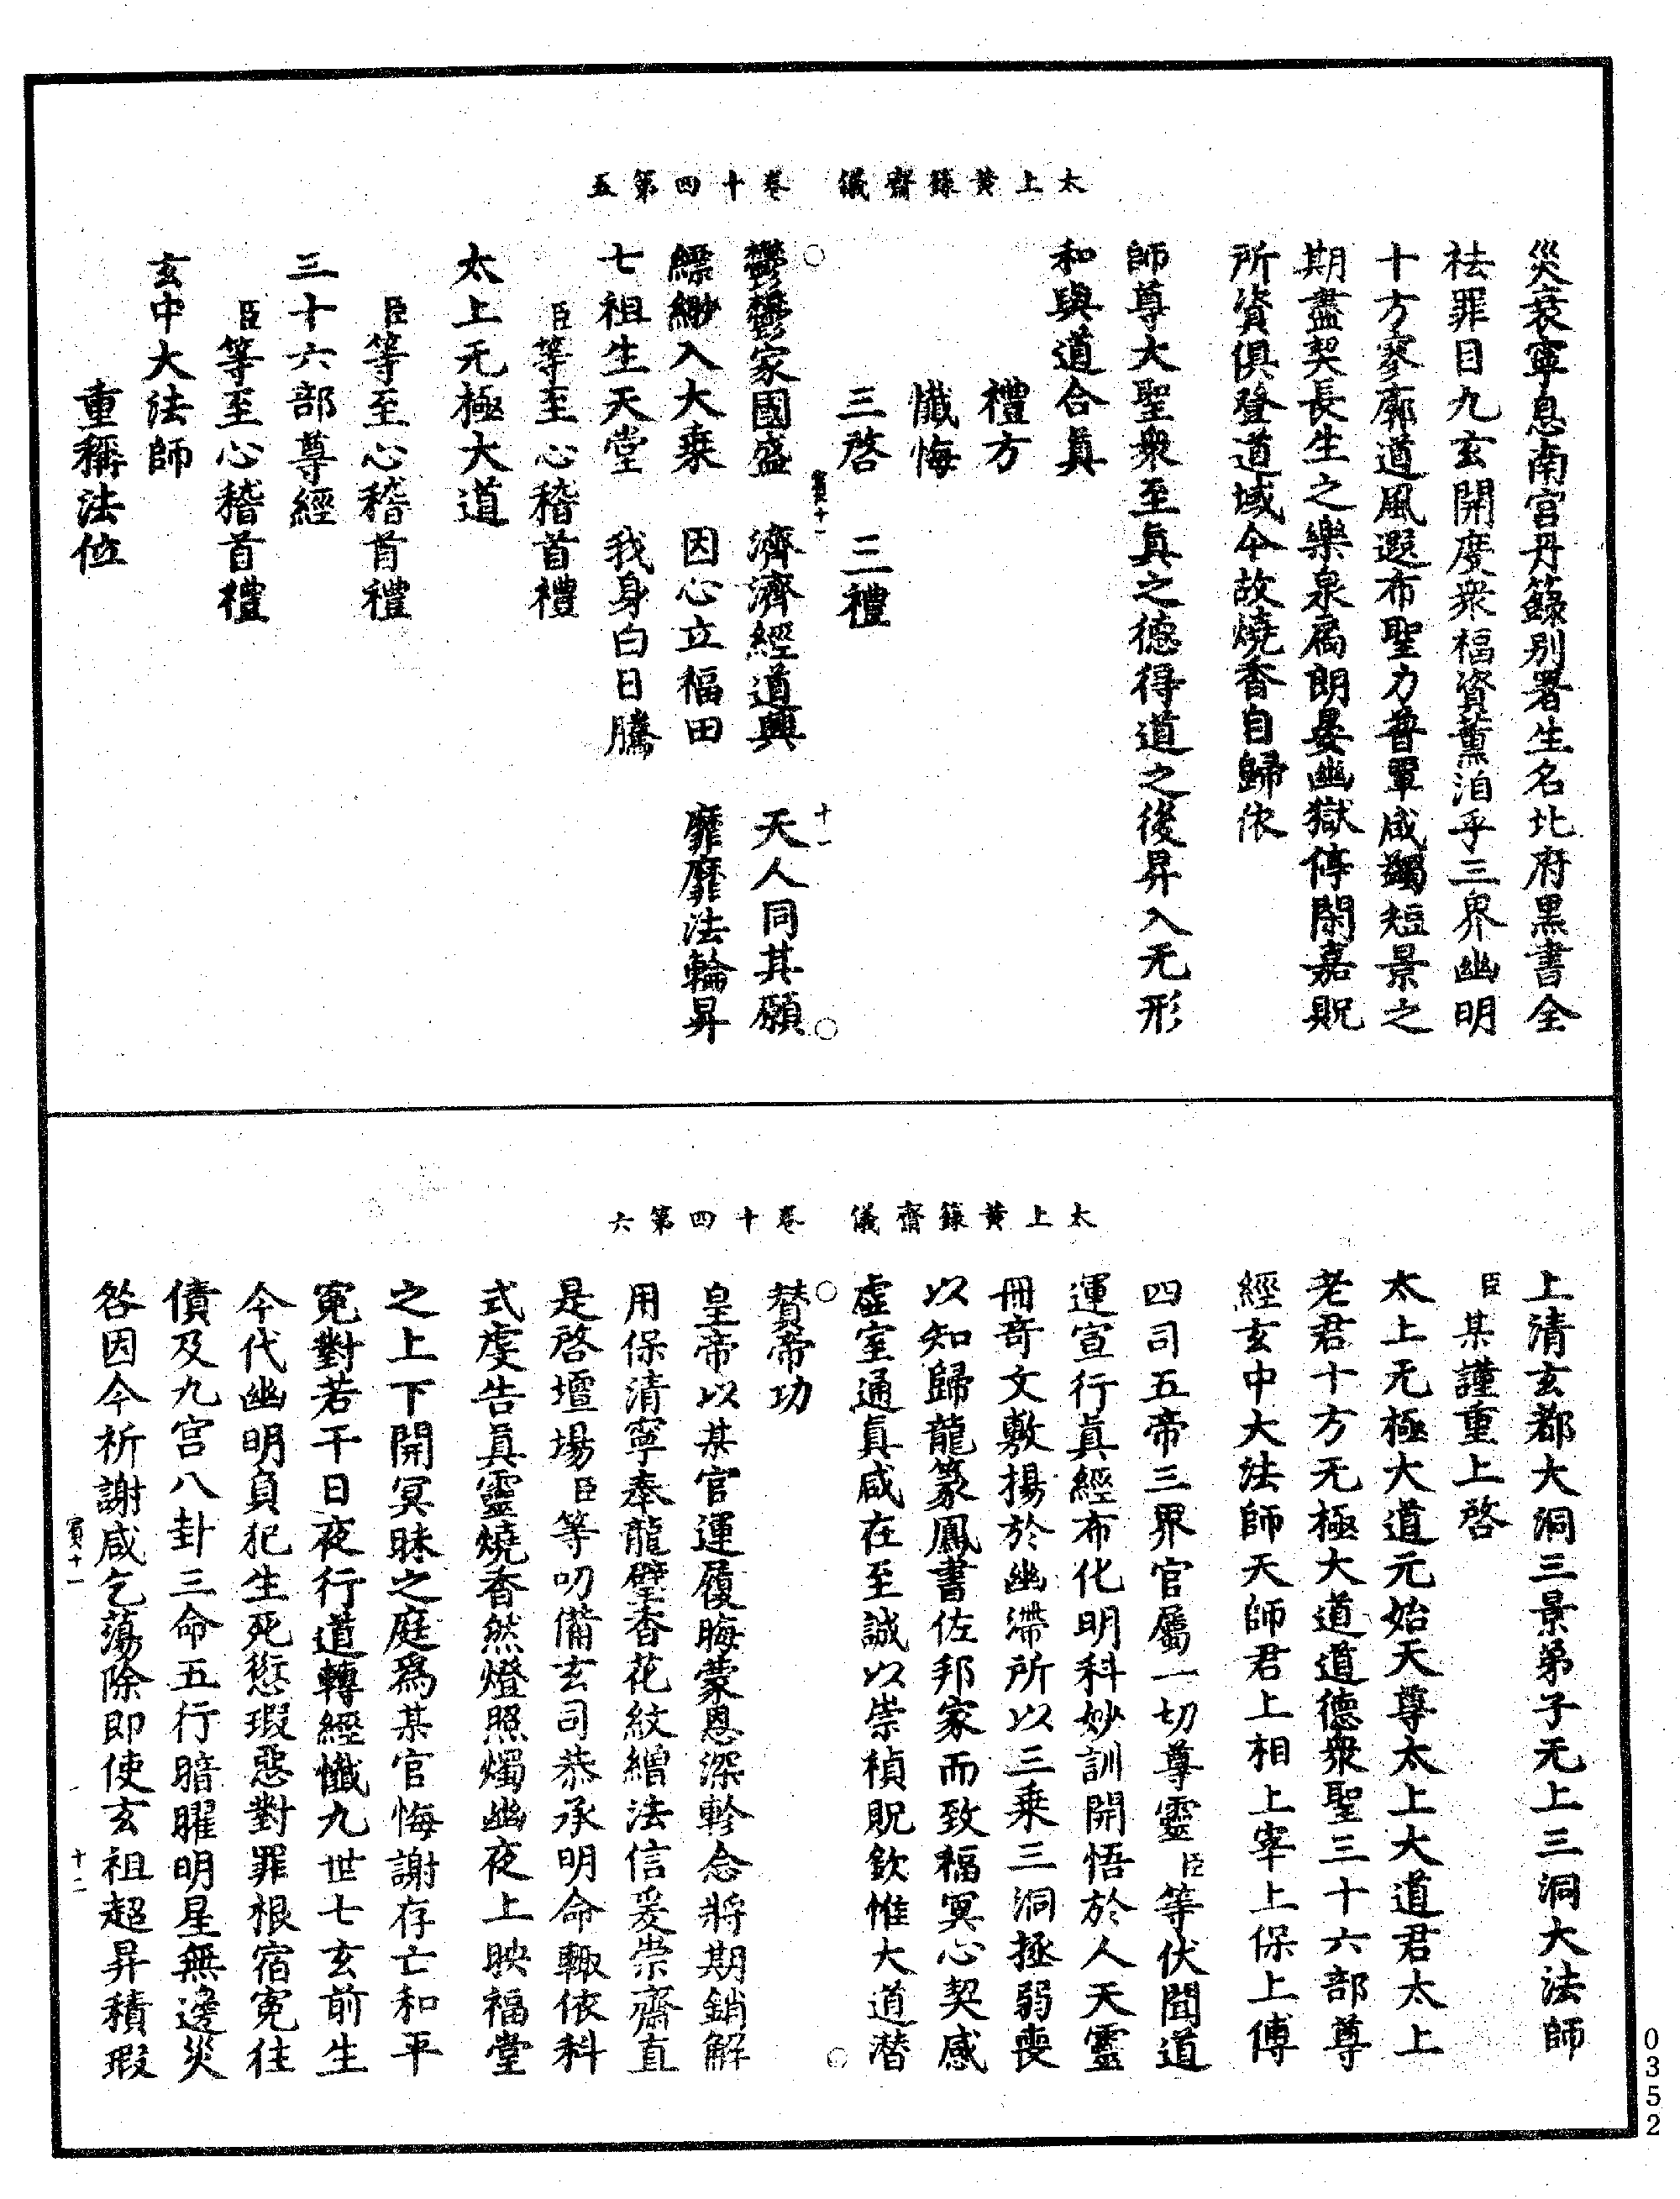 太上黃籙齋儀　卷十四第五
災衰寧息南宮丹籙別署生名北府黑書全
祛罪目九玄開度眾福資薰洎乎三界幽明
十方寥廓道風遐布聖力普覃咸蠲短景之
期盡契長生之樂泉扃朗晏幽獄停閑嘉貺
所資俱登道域今故燒香自歸依
師尊大聖眾至真之德得道之後昇入无形
和與道合真
禮方
懺悔
三啓　三禮
賓十一　十一
鬱鬱家國盛　濟濟經道興　天人同其願
縹緲入大乘　因心立福田　靡靡法輪昇
七祖生天堂　我身白日騰
臣等至心稽首禮
太上无極大道
臣等至心稽首禮
三十六部尊經
臣等至心稽首禮
玄中大法師
重稱法位
太上黃籙齋儀　卷十四第六
上清玄都大洞三景弟子无上三洞大法師
臣某謹重上啓
太上无極大道元始天尊太上大道君太上
老君十方无極大道道德眾聖三十六部尊
經玄中大法師天師君上相上宰上保上傅
四司五帝三界官屬一切尊靈臣等伏聞道
運宣行真經布化明科妙訓開悟於人天靈
冊奇文敷揚於幽滯所以三乘三洞拯弱喪
以知歸龍篆鳳書佐邦家而致福冥心契感
虛室通真咸在至誠以崇禎貺欽惟大道潛
贊帝功
皇帝以某官運履晦蒙恩深軫念將期銷解
用保清寧奉龍璧香花紋繒法信爰崇齋直
是啓壇場臣等叨備玄司恭承明命輒依科
式虔告真靈燒香然燈照燭幽夜上映福堂
之上下開冥昧之庭爲某官悔謝存亡和平
冤對若干日夜行道轉經懺九世七玄前生
今代幽明負犯生死愆瑕惡對罪根宿冤往
債及九宮八卦三命五行暗曜明星無邊災
咎因今祈謝咸乞蕩除即使玄祖超昇積瑕
賓十一　十二
0352